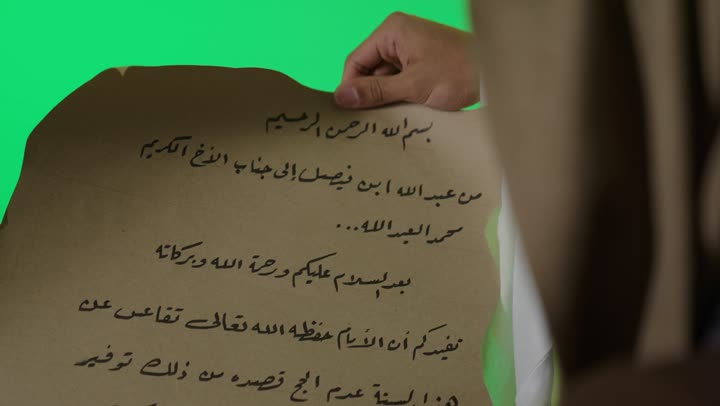 بسم الله الرحمن الرحيم
من عبدالله ابن فيصل إلى جناب الأخ الكريم
محمد العبدالله...
بعد السلام عليكم ورحمة الله وبركاته
نفيدكم أن الأيام حفظه الله تعالى تقاعس عن
هذا السنة عدم الحج قصيده من ذلك توفير